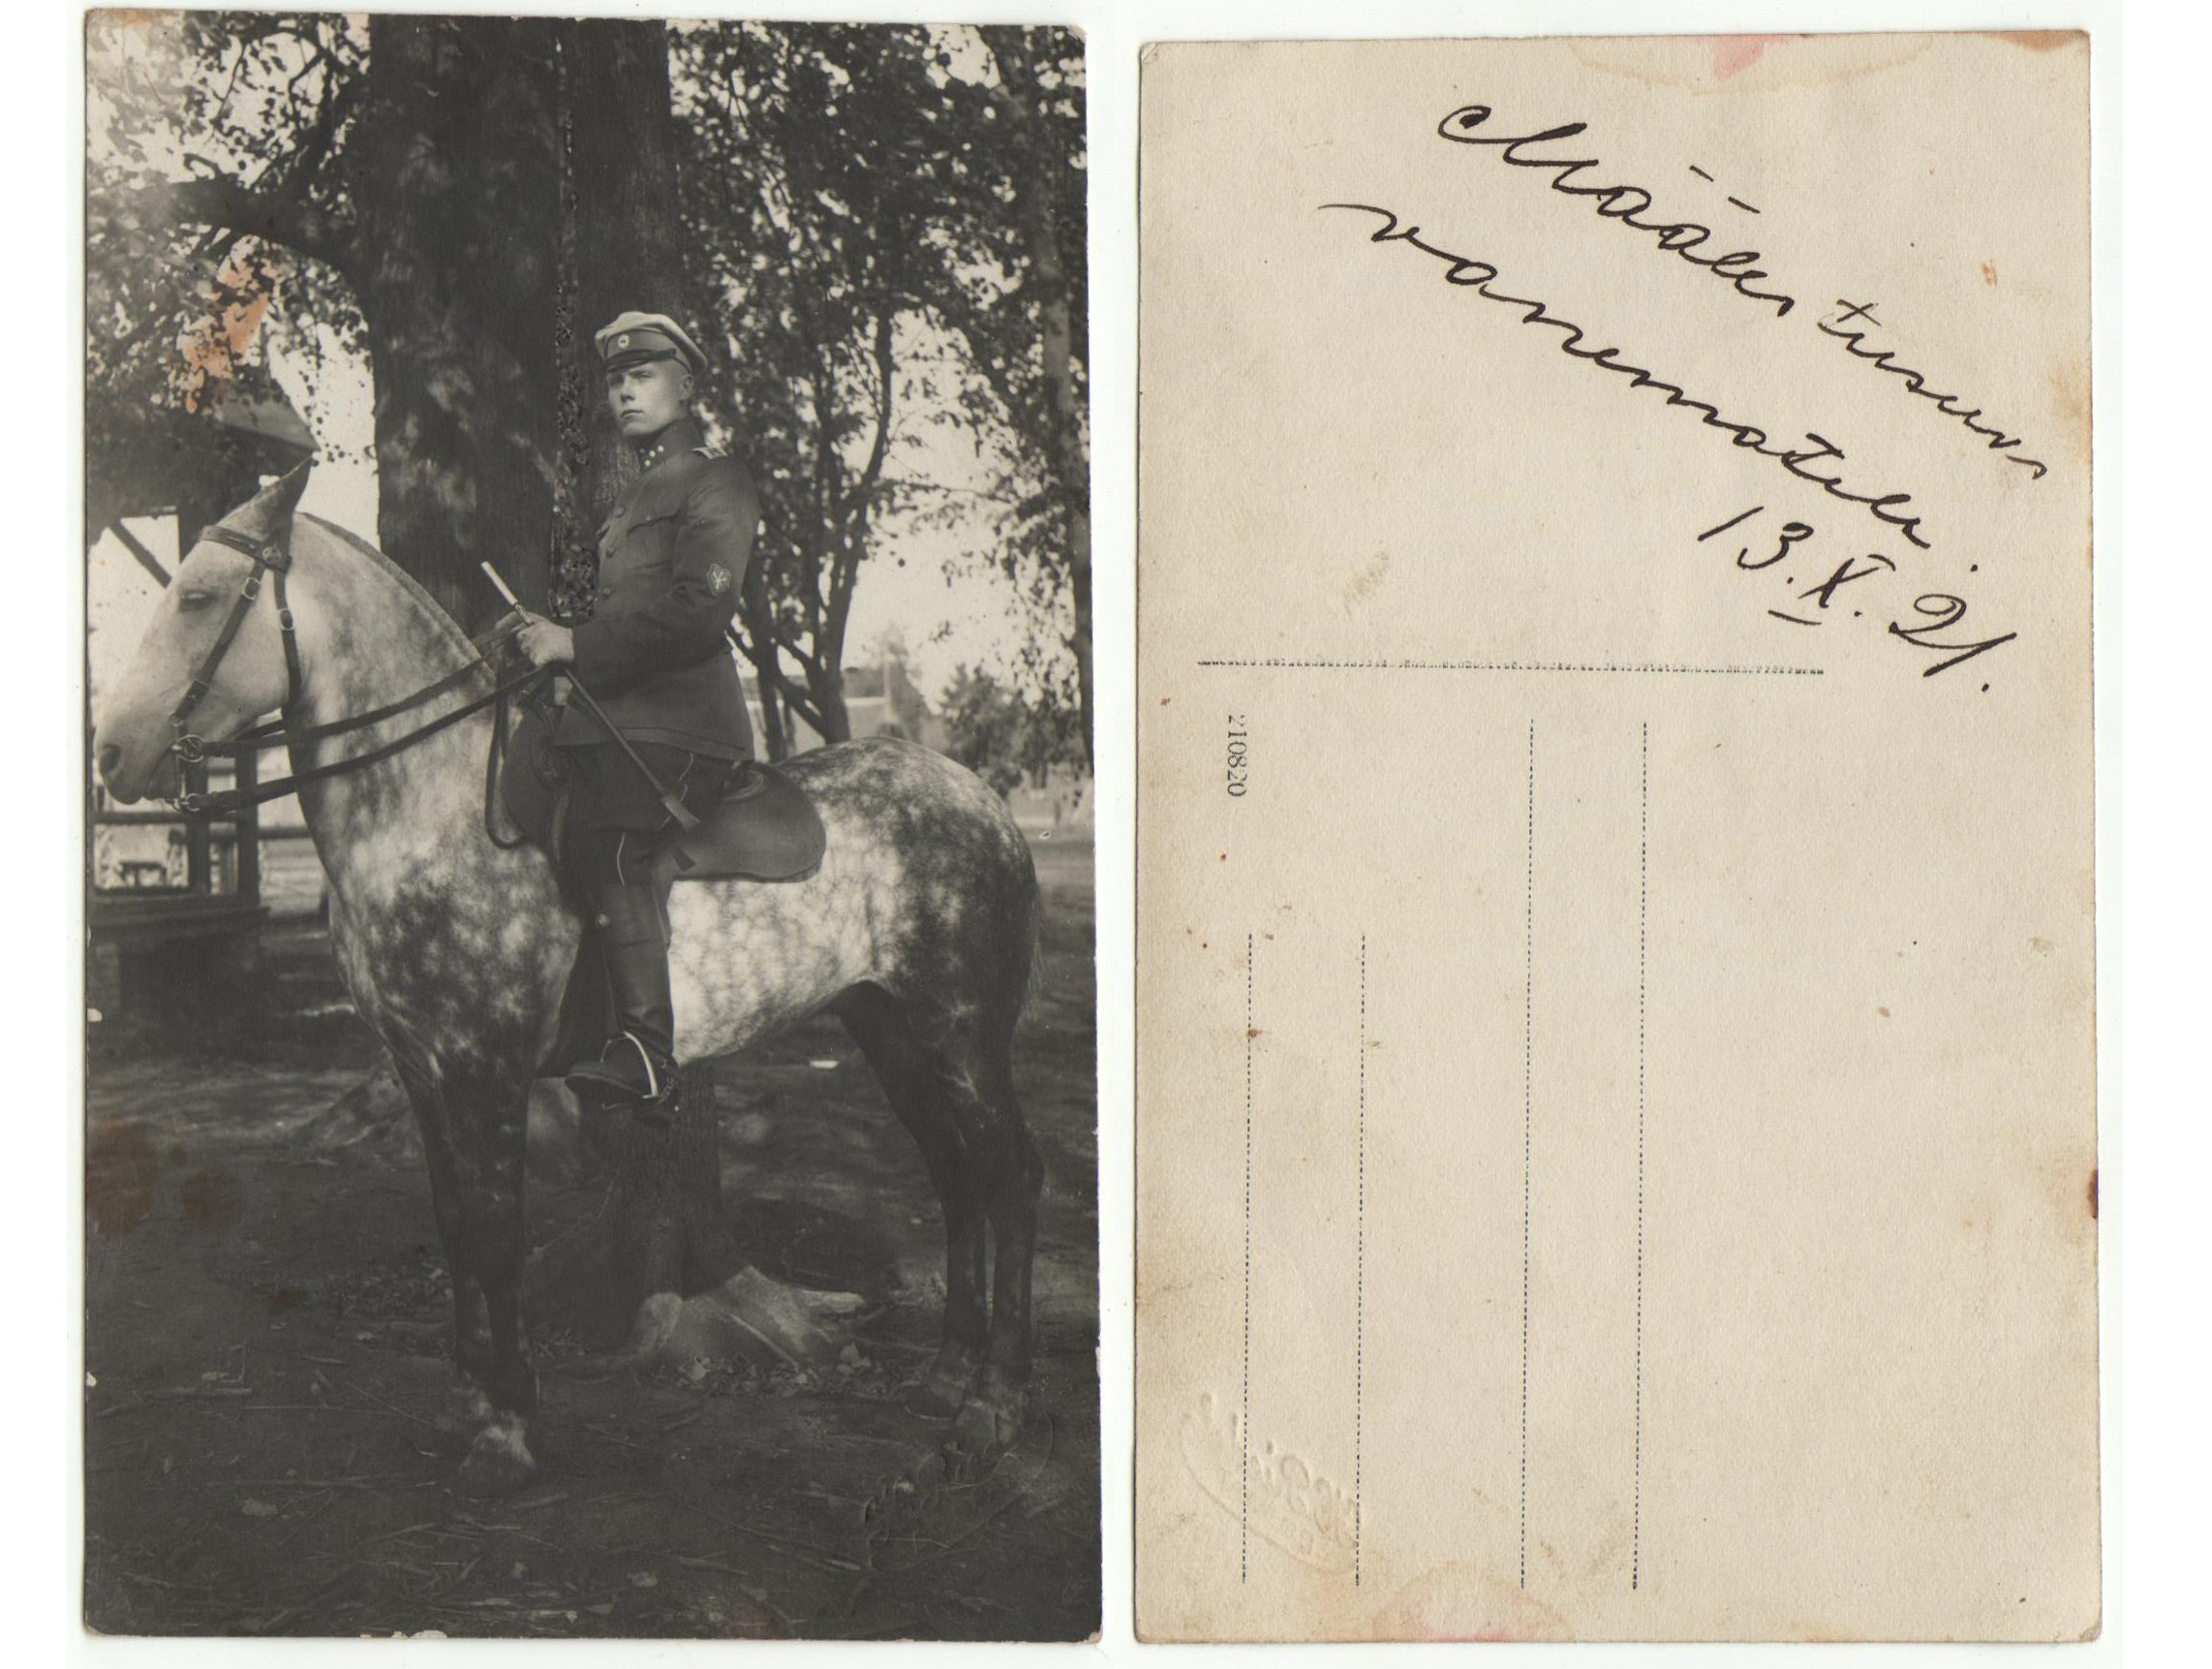 Määlestuseks
vanematele.
13. X. 21.
210820